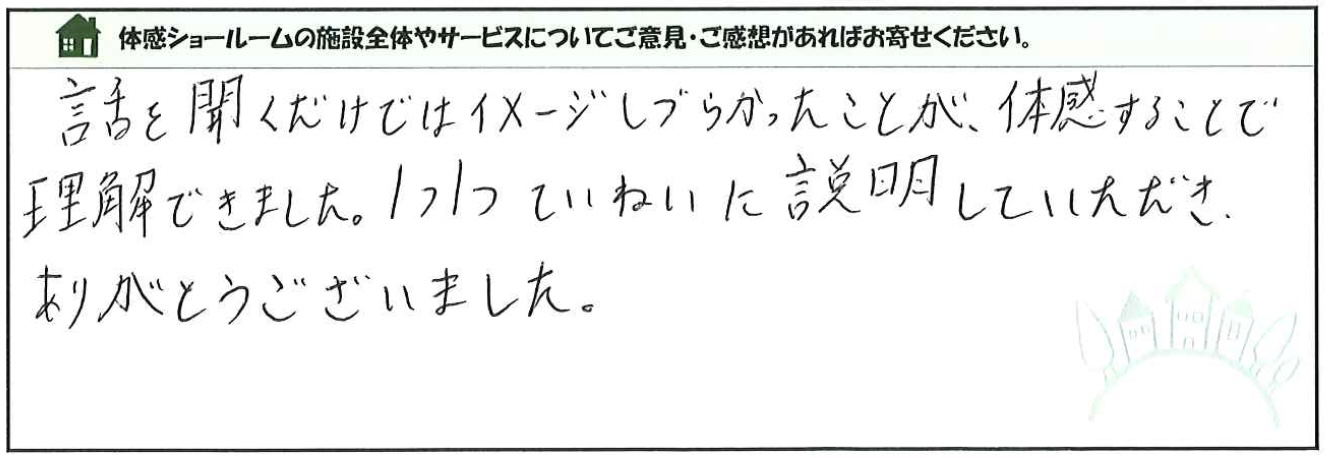 体感ショールームの施設全体やサービスについてご意見・ご感想があればお寄せください。
話を聞くだけではイメージしづらかったことが、体感することで
理解できました。1つ1つていねいに説明していただき、
ありがとうございました。